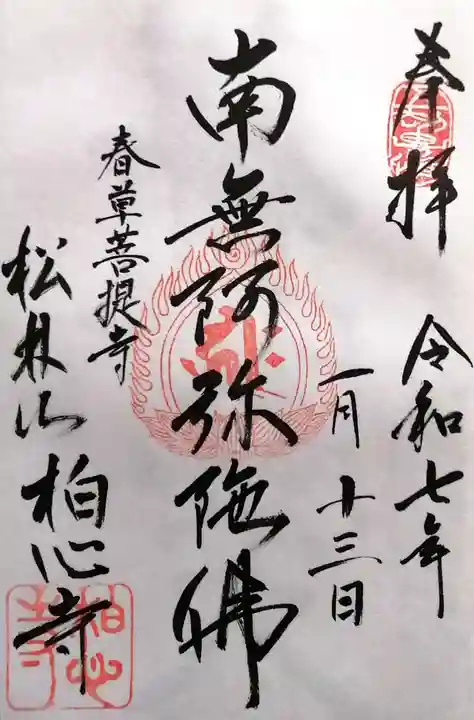 奉拝
令和七年
一月十三日
南無阿弥陀佛
春草菩提寺
松林山柏心寺
柏心寺